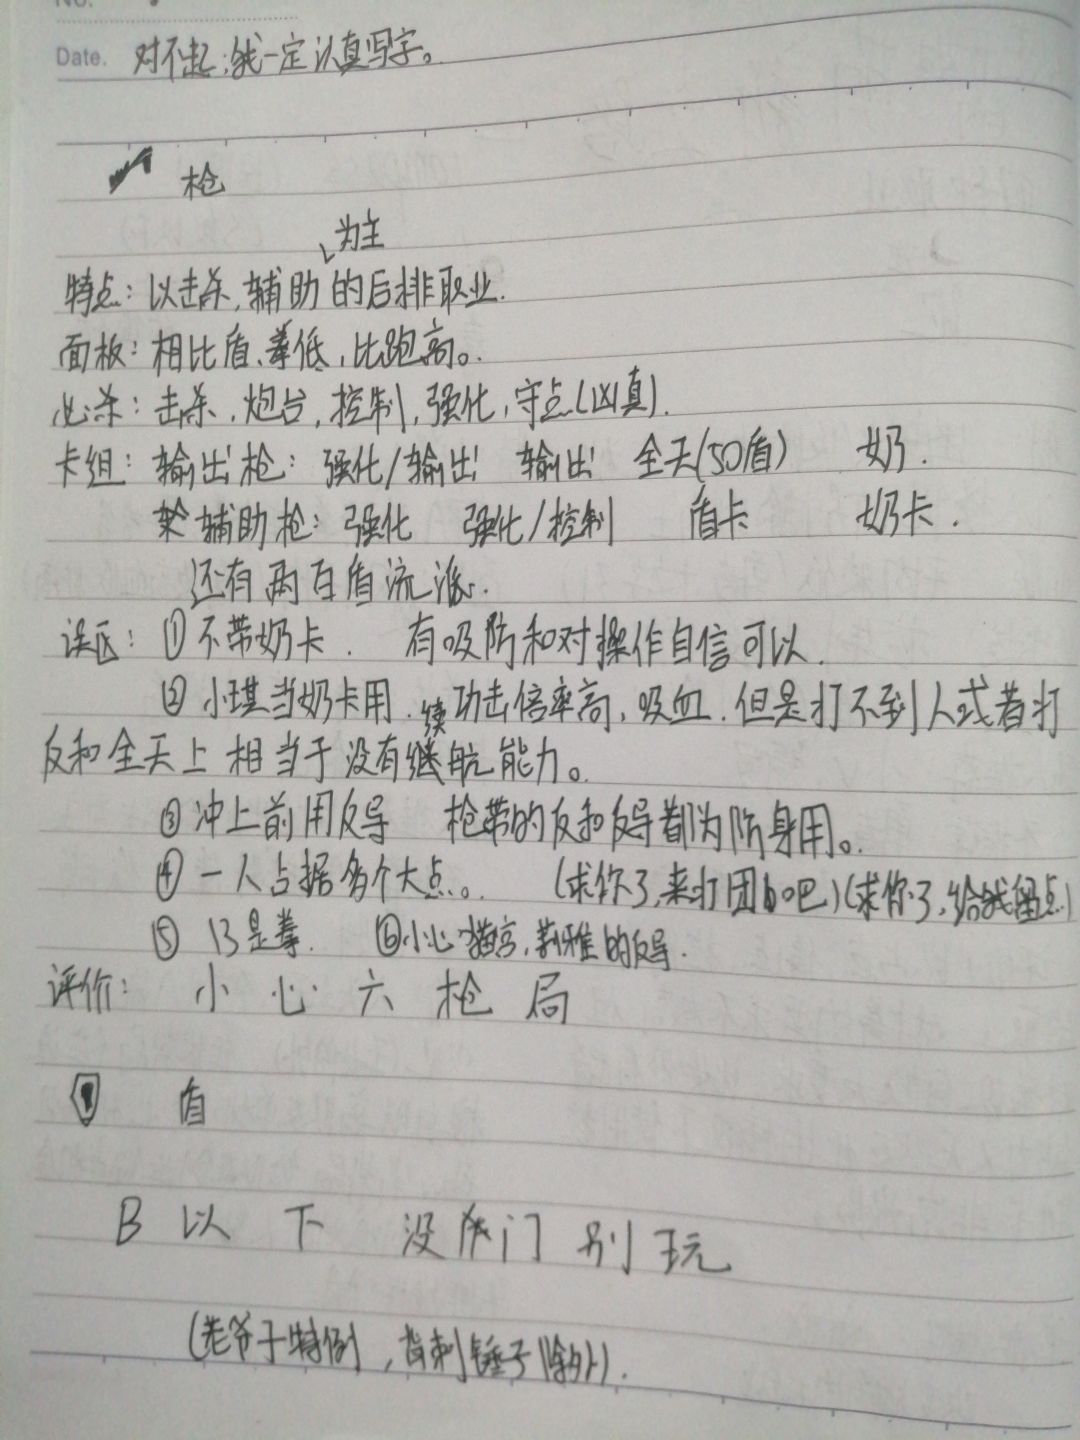 No.
Date. 对不起,我一定认真写字。
枪
为主
特点: 以击杀,辅助的后排职业.
面板: 相比盾、拳低,比跑高。
必杀: 击杀,炮台,控制,强化,守点(凶真).
卡组: 输出枪: 强化/输出 输出 全天(50盾) 奶.
辅助枪: 强化 强化/控制 盾卡 奶卡.
还有两百盾流派.
误区: ①不带奶卡. 有吸防和对操作自信可以.
②小琪当奶卡用. 功击倍率高,吸血.但是打不到人或者打
续
反和全天上相当于没有航能力。
③冲上前用反导 枪带的反和反导都为防身用。
④一人占据多个大点。 (求你了,来打团bo吧)(求你了,给我留点)
⑤ 13是拳. ⑥小心猫宫,莉雅的反导.
评价: 小心六枪局
盾
B以下没后门别玩
(老爷子特例,背刺锤子除外).